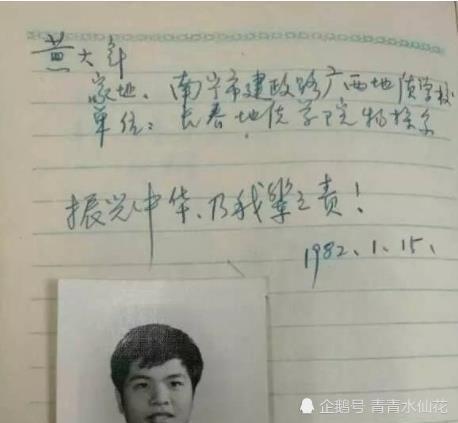 黄大年
家址：南宁市建政路广西地质学校
单位：长春地质学院物探系
振兴中华，乃我辈之责！
1982.1.15.
企鹅号 青青水仙花